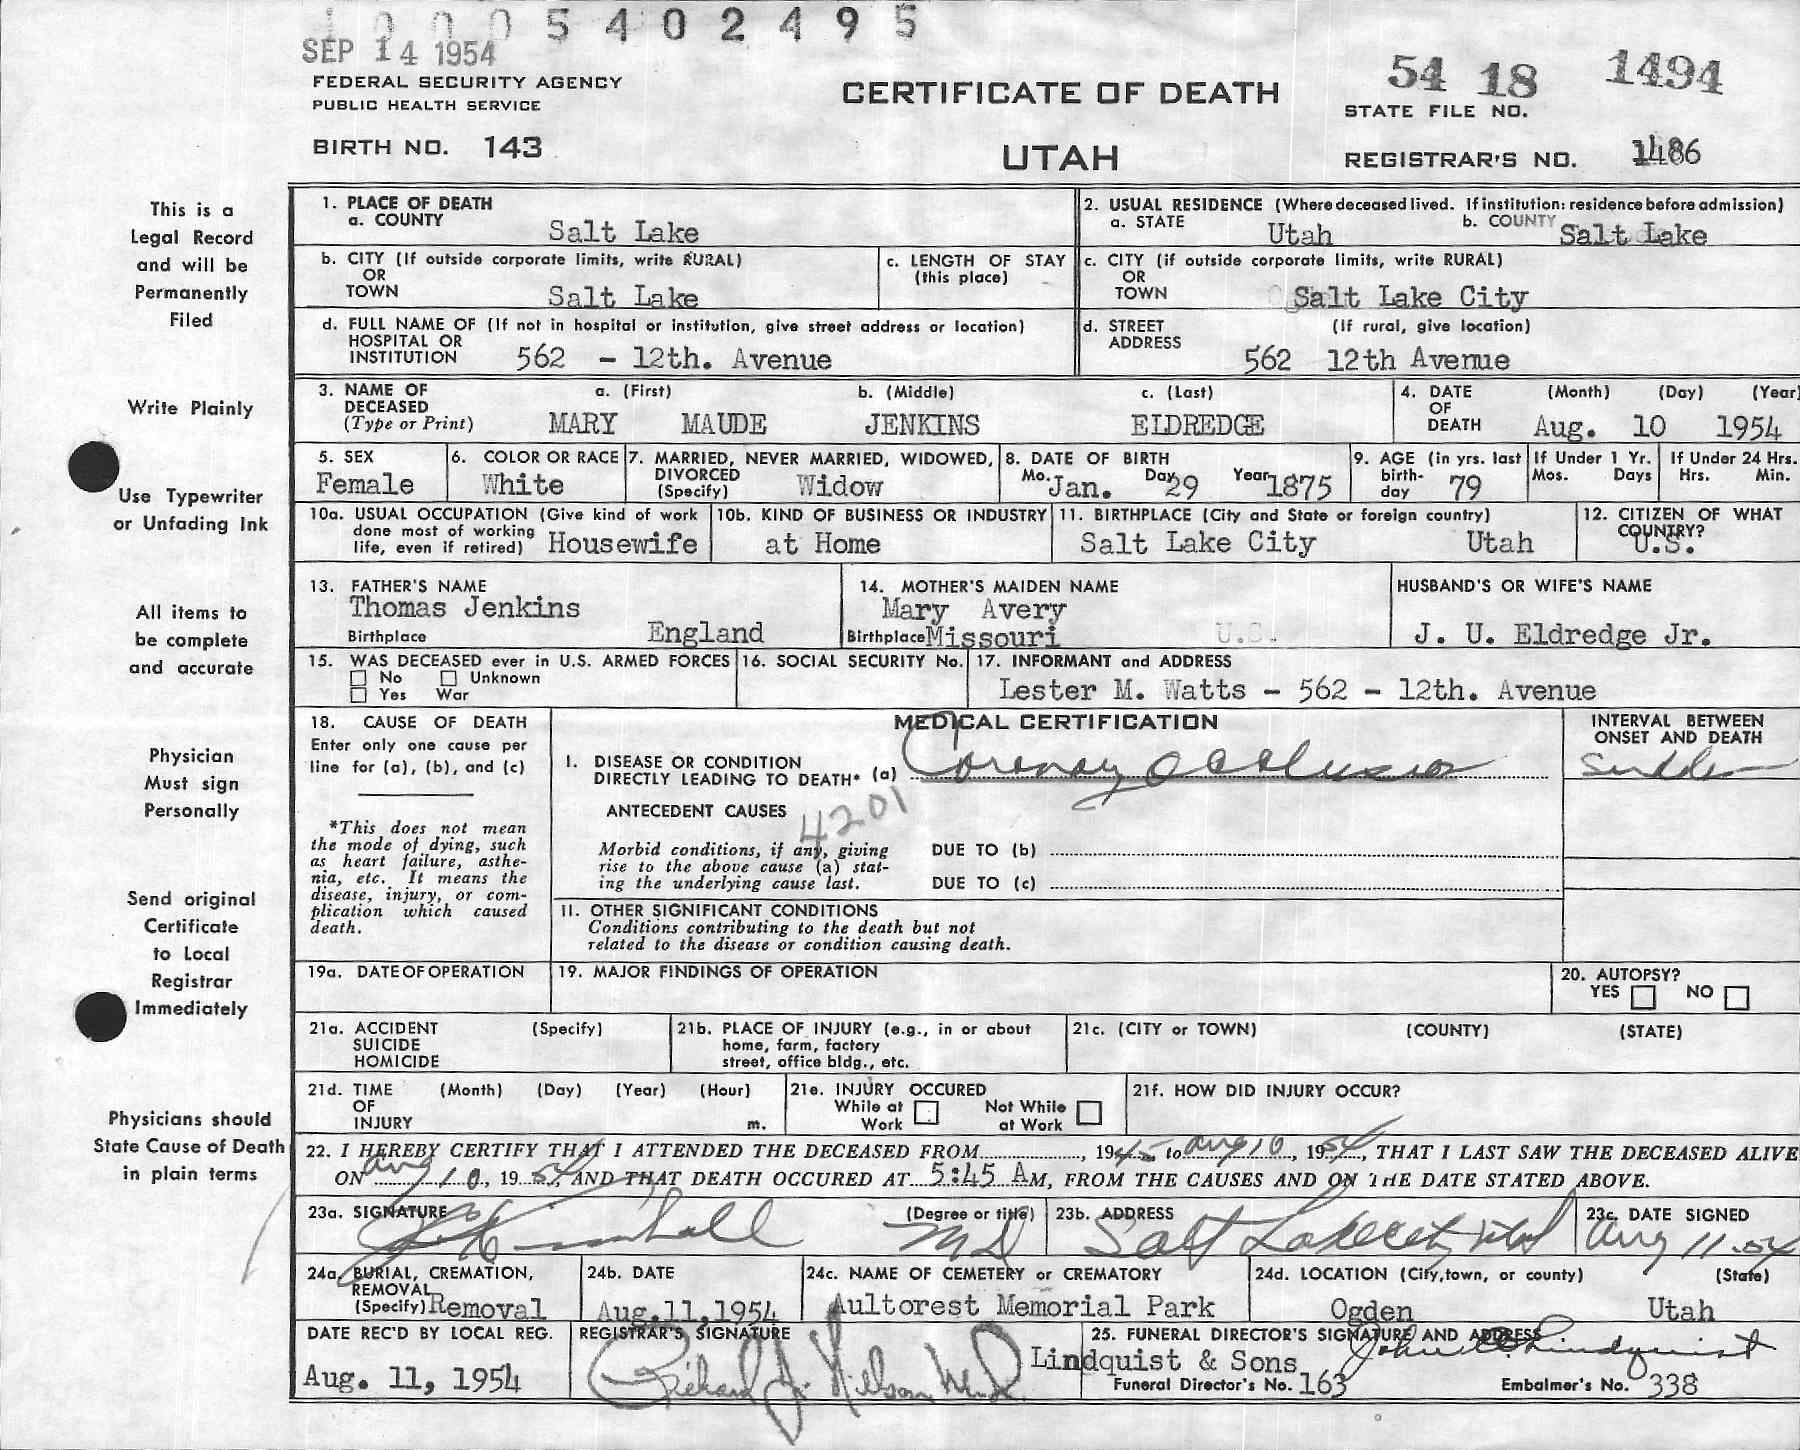 1000 5 4 0 2 4 9 5
SEP 14 1954
FEDERAL SECURITY AGENCY
PUBLIC HEALTH SERVICE
BIRTH NO. 143
CERTIFICATE OF DEATH
UTAH
54 18 1494
STATE FILE NO.
REGISTRAR'S NO. 1486
This is a
Legal Record
and will be
Permanently
Filed
Write Plainly
Use Typewriter
or Unfading Ink
All items to
be complete
and accurate
Physician
Must sign
Personally
Send original
Certificate
to Local
Registrar
Immediately
Physicians should
State Cause of Death
in plain terms
1. PLACE OF DEATH
a. COUNTY Salt Lake
2. USUAL RESIDENCE (Where deceased lived. If institution: residence before admission)
a. STATE Utah b. COUNTY Salt Lake
b. CITY (If outside corporate limits, write RURAL)
OR
TOWN Salt Lake
c. LENGTH OF STAY
(this place)
c. CITY (if outside corporate limits, write RURAL)
OR
TOWN Salt Lake City
d. FULL NAME OF (If not in hospital or institution, give street address or location)
HOSPITAL OR
INSTITUTION 562 - 12th. Avenue
d. STREET (If rural, give location)
ADDRESS
562 12th Avenue
3. NAME OF DECEASED (Type or Print)
a. (First) b. (Middle) c. (Last)
MARY MAUDE JENKINS ELDREDGE
4. DATE OF DEATH (Month) (Day) (Year)
Aug. 10 1954
5. SEX
Female
6. COLOR OR RACE
White
7. MARRIED, NEVER MARRIED, WIDOWED,
DIVORCED
(Specify) Widow
8. DATE OF BIRTH
Mo. Jan. Day 29 Year 1875
9. AGE (in yrs. last
birth-
day 79
If Under 1 Yr.
Mos. Days
If Under 24 Hrs.
Hrs. Min.
10a. USUAL OCCUPATION (Give kind of work
done most of working
life, even if retired) Housewife
10b. KIND OF BUSINESS OR INDUSTRY
at Home
11. BIRTHPLACE (City and State or foreign country)
Salt Lake City Utah
12. CITIZEN OF WHAT
COUNTRY?
U.S.
13. FATHER'S NAME
Thomas Jenkins
Birthplace England
14. MOTHER'S MAIDEN NAME
Mary Avery
Birthplace Missouri U.S.
HUSBAND'S OR WIFE'S NAME
J. U. Eldredge Jr.
15. WAS DECEASED ever in U.S. ARMED FORCES
No Unknown
Yes War
16. SOCIAL SECURITY No.
17. INFORMANT and ADDRESS
Lester M. Watts - 562 - 12th. Avenue
18. CAUSE OF DEATH
Enter only one cause per
line for (a), (b), and (c)
*This does not mean
the mode of dying, such
as heart failure, asthe-
nia, etc. It means the
disease, injury, or com-
plication which caused
death.
MEDICAL CERTIFICATION
INTERVAL BETWEEN
ONSET AND DEATH
I. DISEASE OR CONDITION
DIRECTLY LEADING TO DEATH* (a) Coronary occlusion
sudden
ANTECEDENT CAUSES
4201
Morbid conditions, if any, giving
rise to the above cause (a) stat-
ing the underlying cause last.
DUE TO (b)
DUE TO (c)
II. OTHER SIGNIFICANT CONDITIONS
Conditions contributing to the death but not
related to the disease or condition causing death.
19a. DATE OF OPERATION
19. MAJOR FINDINGS OF OPERATION
20. AUTOPSY?
YES NO
21a. ACCIDENT (Specify)
SUICIDE
HOMICIDE
21b. PLACE OF INJURY (e.g., in or about
home, farm, factory
street, office bldg., etc.
21c. (CITY or TOWN) (COUNTY) (STATE)
21d. TIME (Month) (Day) (Year) (Hour)
OF
INJURY m.
21e. INJURY OCCURED
While at Work Not While at Work
21f. HOW DID INJURY OCCUR?
22. I HEREBY CERTIFY THAT I ATTENDED THE DECEASED FROM, 1945 to Aug 10, 1954, THAT I LAST SAW THE DECEASED ALIVE
ON Aug 10, 1954, AND THAT DEATH OCCURED AT 5:45 AM, FROM THE CAUSES AND ON THE DATE STATED ABOVE.
23a. SIGNATURE (Degree or title)
Kimball MD
23b. ADDRESS
Salt Lake City Utah
23c. DATE SIGNED
Aug 11.54
24a. BURIAL, CREMATION,
REMOVAL
(Specify) Removal
24b. DATE
Aug.11,1954
24c. NAME OF CEMETERY or CREMATORY
Aultorest Memorial Park
24d. LOCATION (City, town, or county) (State)
Ogden Utah
DATE REC'D BY LOCAL REG.
Aug. 11, 1954
REGISTRAR'S SIGNATURE
Richard J. Nelson
25. FUNERAL DIRECTOR'S SIGNATURE AND ADDRESS
Lindquist & Sons John Lindquist
Funeral Director's No. 163 Embalmer's No. 338